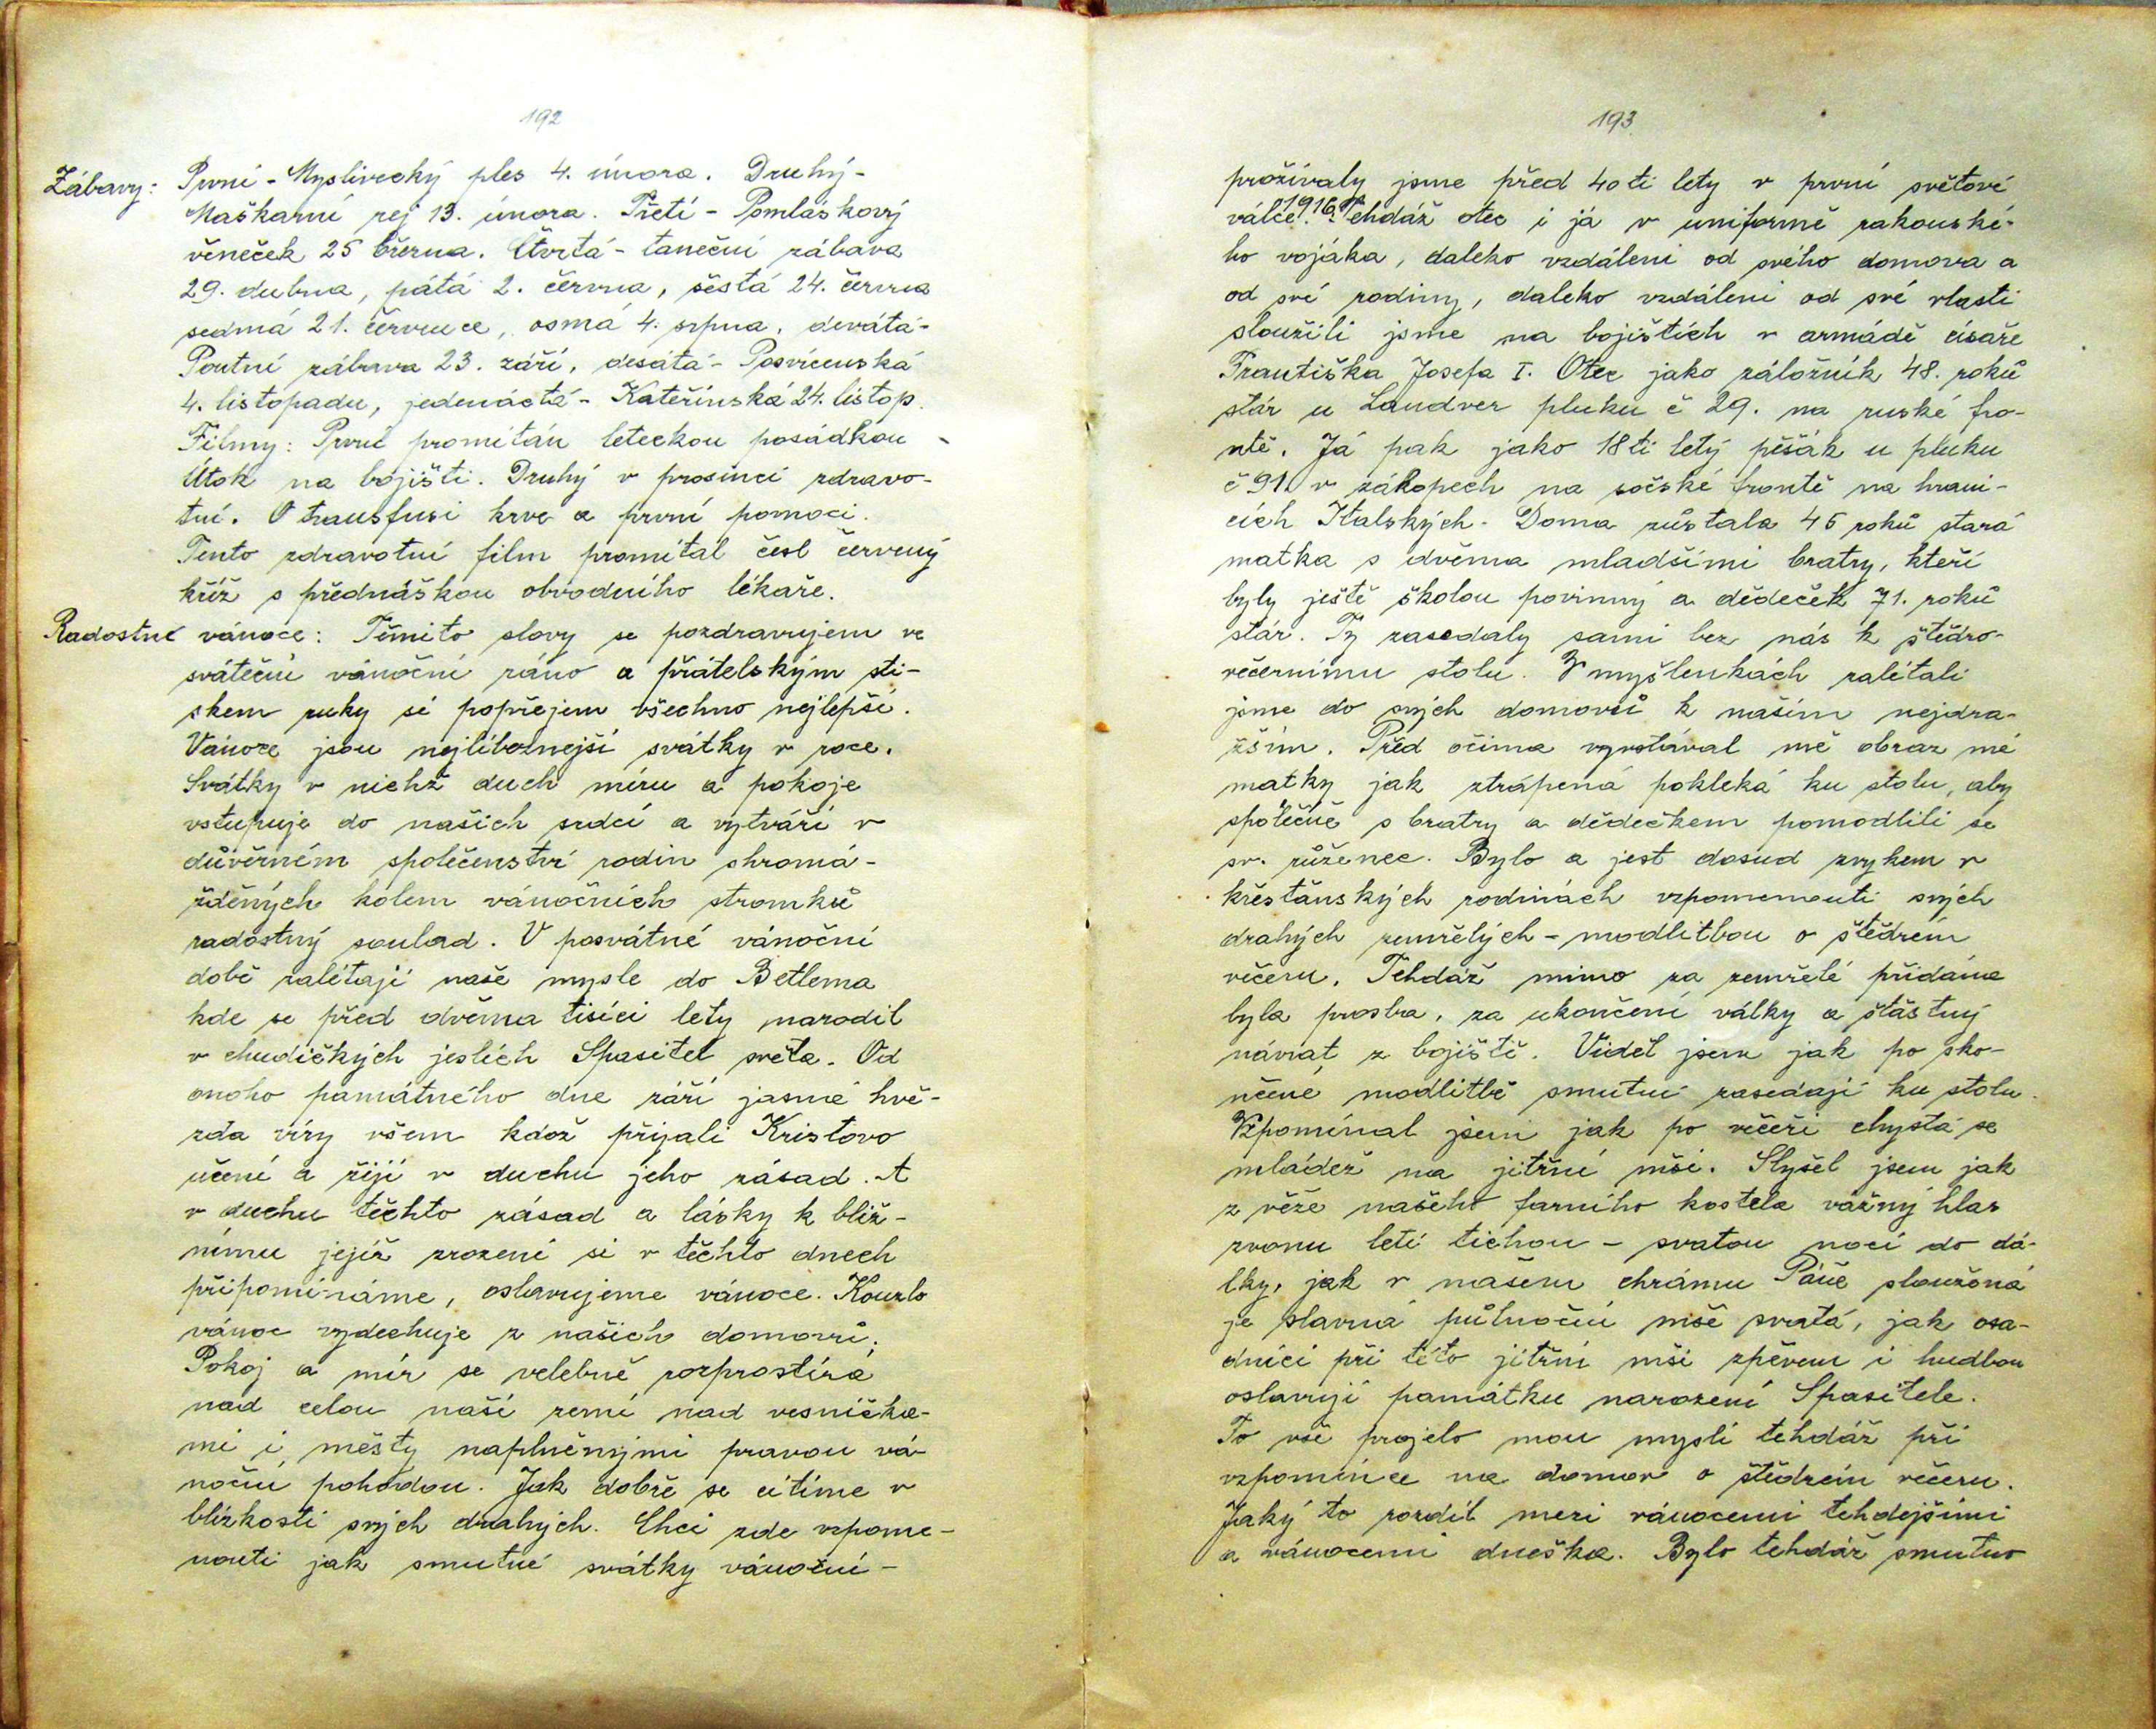 192
Zábavy: První - Myslivecký ples 4. února. Druhý -
Maškarní rej 13. února. Třetí - Pomláskový
věneček 25 března. Čtvrtá - taneční zábava
29. dubna, pátá 2. června, šestá 24. června
sedmá 21. července, osmá 4. srpna, devátá -
Poutní zábava 23. září, desátá - Posvícenská
4. listopadu, jedenáctá - Kateřinská 24. listop.
Filmy: První promítán leteckou posádkou -
Útok na bojišti. Druhý v prosinci zdravo-
tní. O transfusi krve a první pomoci.
Tento zdravotní film promítal česl červený
kříž s přednáškou obvodního lékaře.
Radostné vánoce: Těmito slovy se pozdravujem ve
sváteční vánoční ráno a přátelským sti-
skem ruky si popřejem všechno nejlepší.
Vánoce jsou nejlíbeznejší svátky v roce.
Svátky v nichž duch míru a pokoje
vstupuje do našich srdcí a vytváří v
důvěrném společenství rodin shromá-
žděných kolem vánočních stromků
radostný soulad. V posvátné vánoční
době zalétají naše mysle do Betlema
kde se před dvěma tisíci lety narodil
v chudičkých jeslích Spasitel světa. Od
onoho památného dne září jasné hvě-
zda víry všem kdož přijali Kristovo
učení a žijí v duchu jeho zásad. A
v duchu těchto zásad a lásky k bliž-
nímu jejíž zrození si v těchto dnech
připomínáme, oslavujeme vánoce. Kouzlo
vánoc vydechuje z našich domovů.
Pokoj a mír se velebně rozprostírá
nad celou naší zemí nad vesnička-
mi i městy naplněnými pravou vá-
noční pohodou. Jak dobře se cítíme v
blízkosti svých drahých. Chci zde vzpome-
nouti jak smutné svátky vánoční -
193
prožívaly jsme před 40ti lety v první světové
válce 1916. Tehdáž otec i já v uniformě rakouské-
ho vojáka, daleko vzdáleni od svého domova a
od své rodiny, daleko vzdáleni od své vlasti
sloužili jsme na bojištích v armádě císaře
Františka Josefa I. Otec jako záložník 48. roků
stár u Landver pluku č 29. na ruské fro-
ntě. Já pak jako 18ti letý pěšák u pluku
č 91. v zákopech na sočské frontě na hrani-
cích Italských. Doma zůstala 45 roků stará
matka s dvěma mladšími bratry, kteří
byly ještě školou povinný a dědeček 71. roků
stár. Ty zasedaly sami bez nás k štědro-
večernímu stolu. V myšlenkách zalétali
jsme do svých domovů k našim nejdra-
žším. Před očima vyvstával mě obraz mé
matky jak ztrápená pokleká ku stolu, aby
společně s bratry a dědečkem pomodlili se
sv. růženec. Bylo a jest dosud zvykem v
křesťanských rodinách vzpomenouti svých
drahých zemřelých - modlitbou o štědrém
večeru. Tehdáž mimo za zemřelé přidána
byla prosba, za ukončení války a šťastný
návrat z bojiště. Viděl jsem jak po sko-
nčené modlitbě smutní zasedají ku stolu.
Vzpomínal jsem jak po večeři chystá se
mládež na jitřní mši. Slyšel jsem jak
z věže našeho farního kostela vážný hlas
zvonu letí tichou - svatou nocí do dá-
lky, jak v našem chrámu Páně sloužená
je slavná půlnoční mše svatá, jak osa-
dníci při této jitřní mši zpěvem i hudbou
oslavují památku narození Spasitele.
To vše projelo mou myslí tehdáž při
vzpomínce na domov o štědrém večeru.
Jaký to rozdíl mezi vánocemi tehdejšími
a vánocemi dneška. Bylo tehdáž smutno